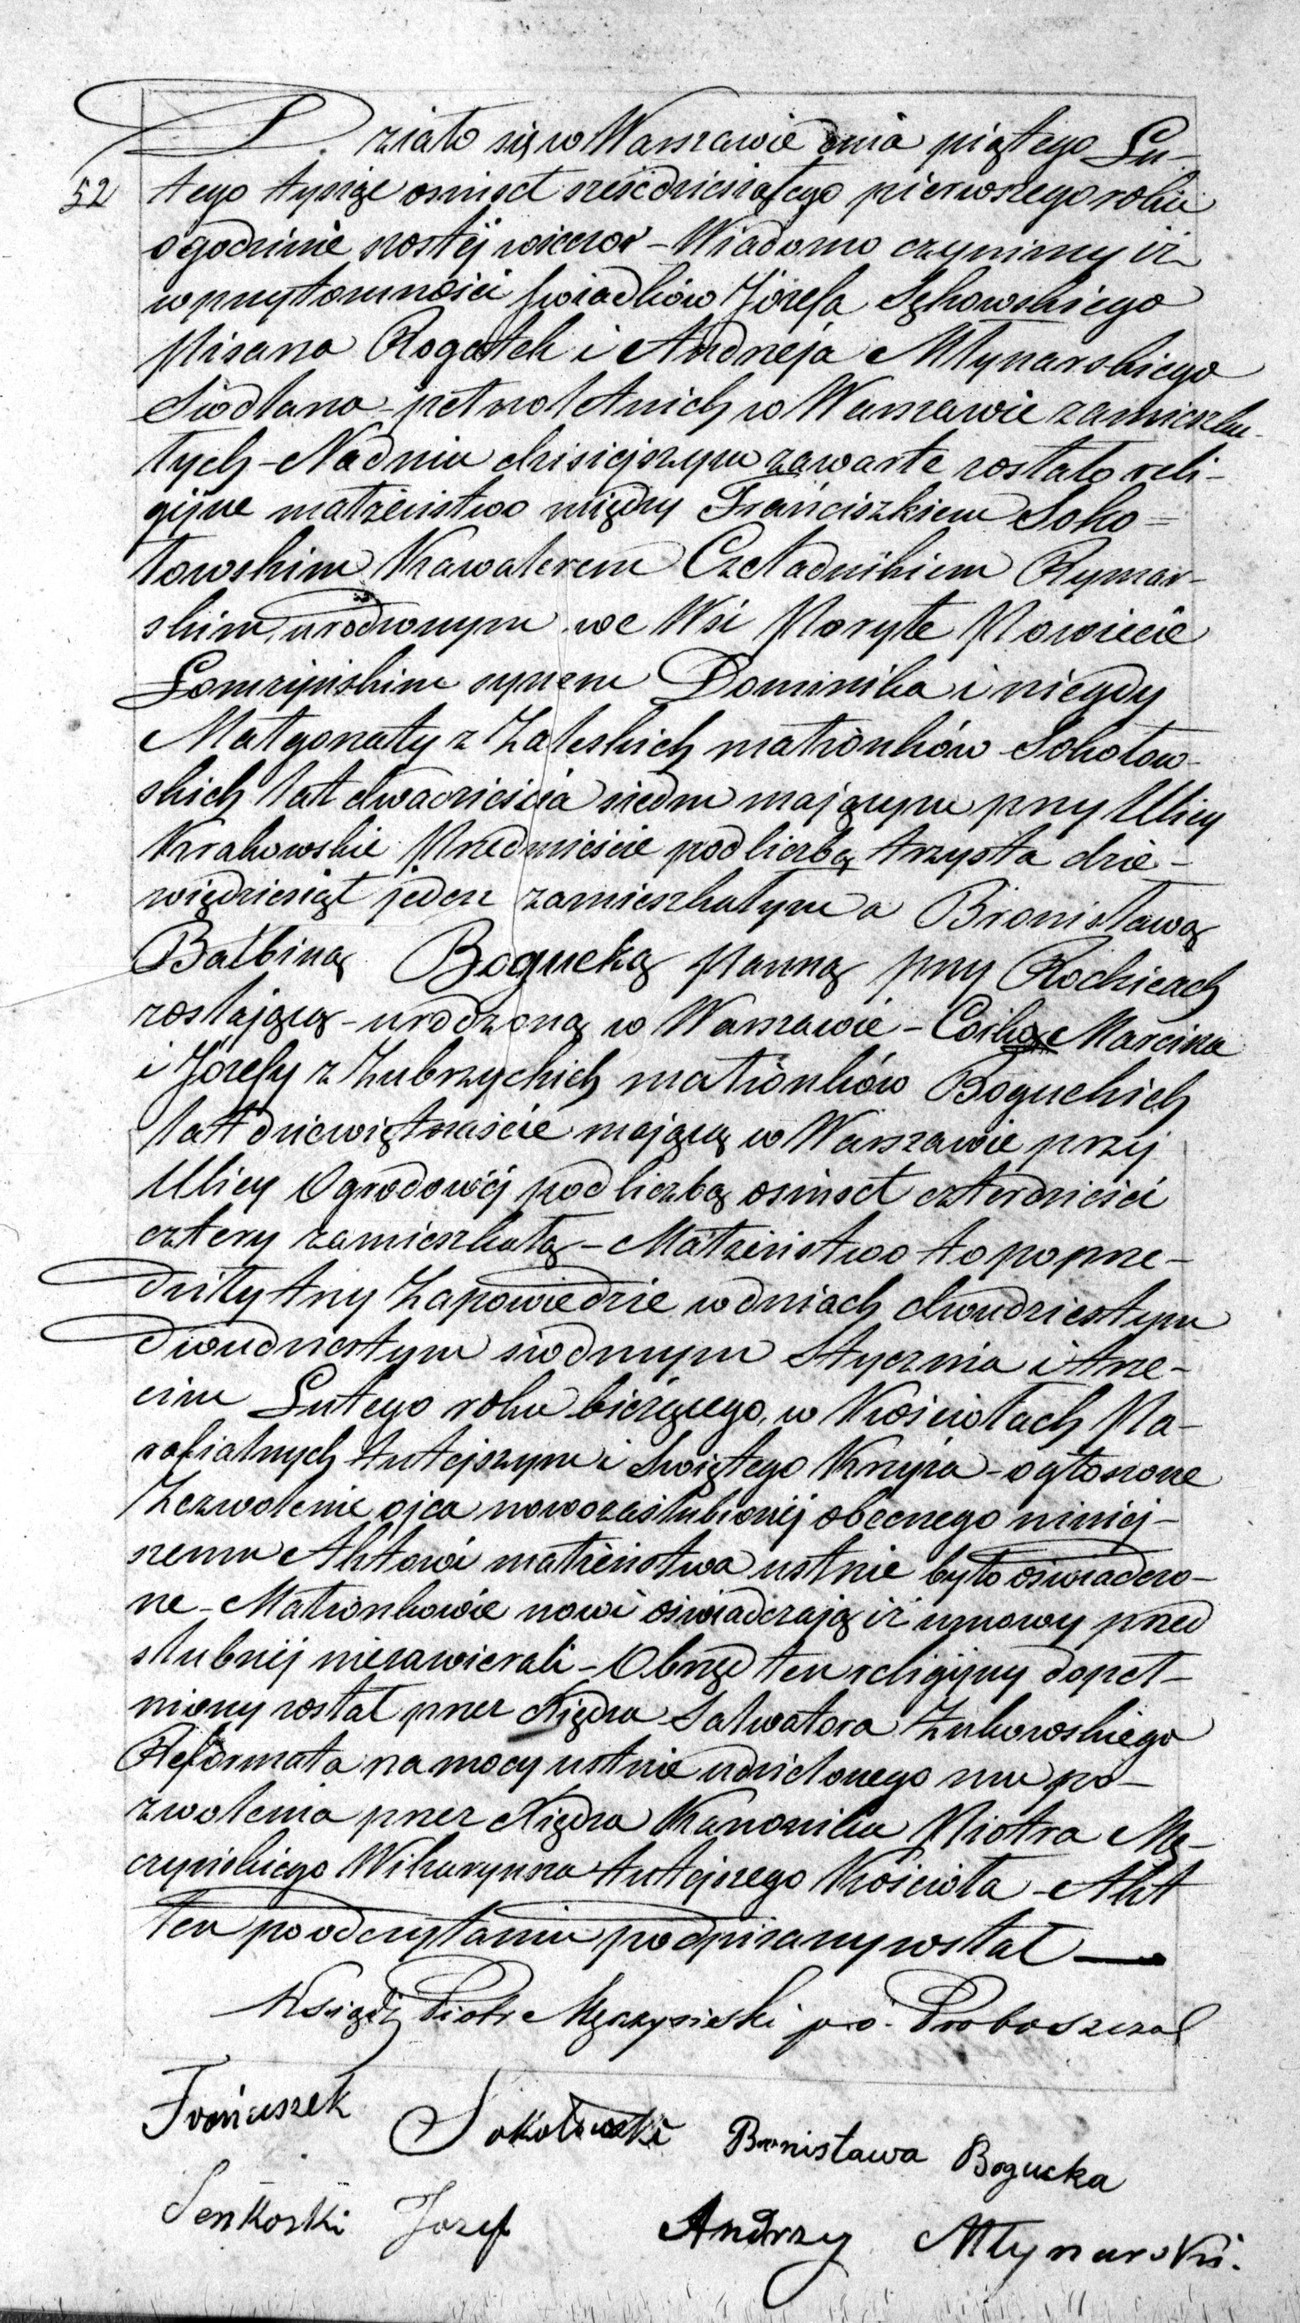 Działo się w Warszawie dnia piątego Lu-
52 tego tysiąc osmset sześćdziesiątego pierwszego roku
o godzinie szóstéj wieczor – Wiadomo czynimy iż
w przytomności swiadków Józefa Sękowskiego
Pisarza Rogatek i Andrzeja Młynarskiego
Siodlarza – pełnoletnich w Warszawie zamieszka-
łych – Na dniu dzisiejszym zawarte zostało reli-
gijne małżeństwo między Franciszkiem Soko=
łowskim Kawalerem Czeladnikiem Rymar-
skim, urodzonym we Wsi Poryte Powiecie
Łomżyńskim synem Dominika i niegdy
Małgorzaty z Zaleskich małżonków Sokołow-
skich lat dwadzieścia siedm mającym przy Ulicy
Krakowskie Przedmieście pod liczbą trzysta dzie-
więdziesiąt jeden zamieszkałym a Bronisławą
Balbiną Bogucką Panną przy Rodzicach
zostającą – urodzoną w Warszawie – Córką Marcina
i Józefy z Zubrzyckich małżonków Boguckich
lat dziewiętnaście mającą w Warszawie przy
Ulicy Ogrodowéj pod liczbą osmset czterdzieści
cztery zamieszkałą – Małżeństwo to poprze-
dziły trzy Zapowiedzie w dniach dwudziestym
dwudziestym siódmym Stycznia i trze-
cim Lutego roku bieżącego, w Kościołach Pa-
rafialnych tutejszym i Swiętego Krzyża – ogłoszone
Zezwolenie ojca nowozaślubionéj obecnego niniej-
szemu Aktowi małżeństwa ustnie było oświadczo-
ne – Małżonkowie nowi oświadczają iż umowy przed
slubnéj niezawierali – Obrzęd ten religijny dopeł-
niony został przez Księdza Salwatora Zukowskiego
Reformata na mocy ustnie udzielonego mu po-
zwolenia przez Księdza Kanonika Piotra Mę-
czyńskiego Wikaryusza tutejszego Kościoła – Akt
ten po odczytaniu podpisany został —
Ksiądz Piotr Męczyński p.o. Proboszcza
Franciszek Sokołowski Bronisława Bogucka
Senkoski Jozef Andrzy Młynarski.